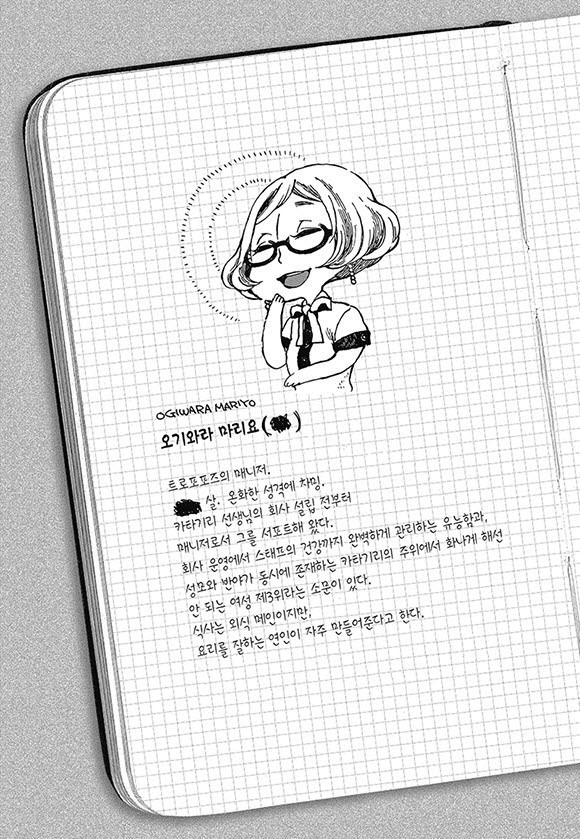 OGIWARA MARIYO
오기와라 마리요( )
트로포포즈의 매니저.
살. 온화한 성격에 차밍.
카타기리 선생님의 회사 설립 전부터
매니저로서 그를 서포트해 왔다.
회사 운영에서 스태프의 건강까지 완벽하게 관리하는 유능함과,
성모와 반야가 동시에 존재하는 카타기리의 주위에서 화나게 해선
안 되는 여성 제3위라는 소문이 있다.
식사는 외식 메인이지만,
요리를 잘하는 연인이 자주 만들어준다고 한다.